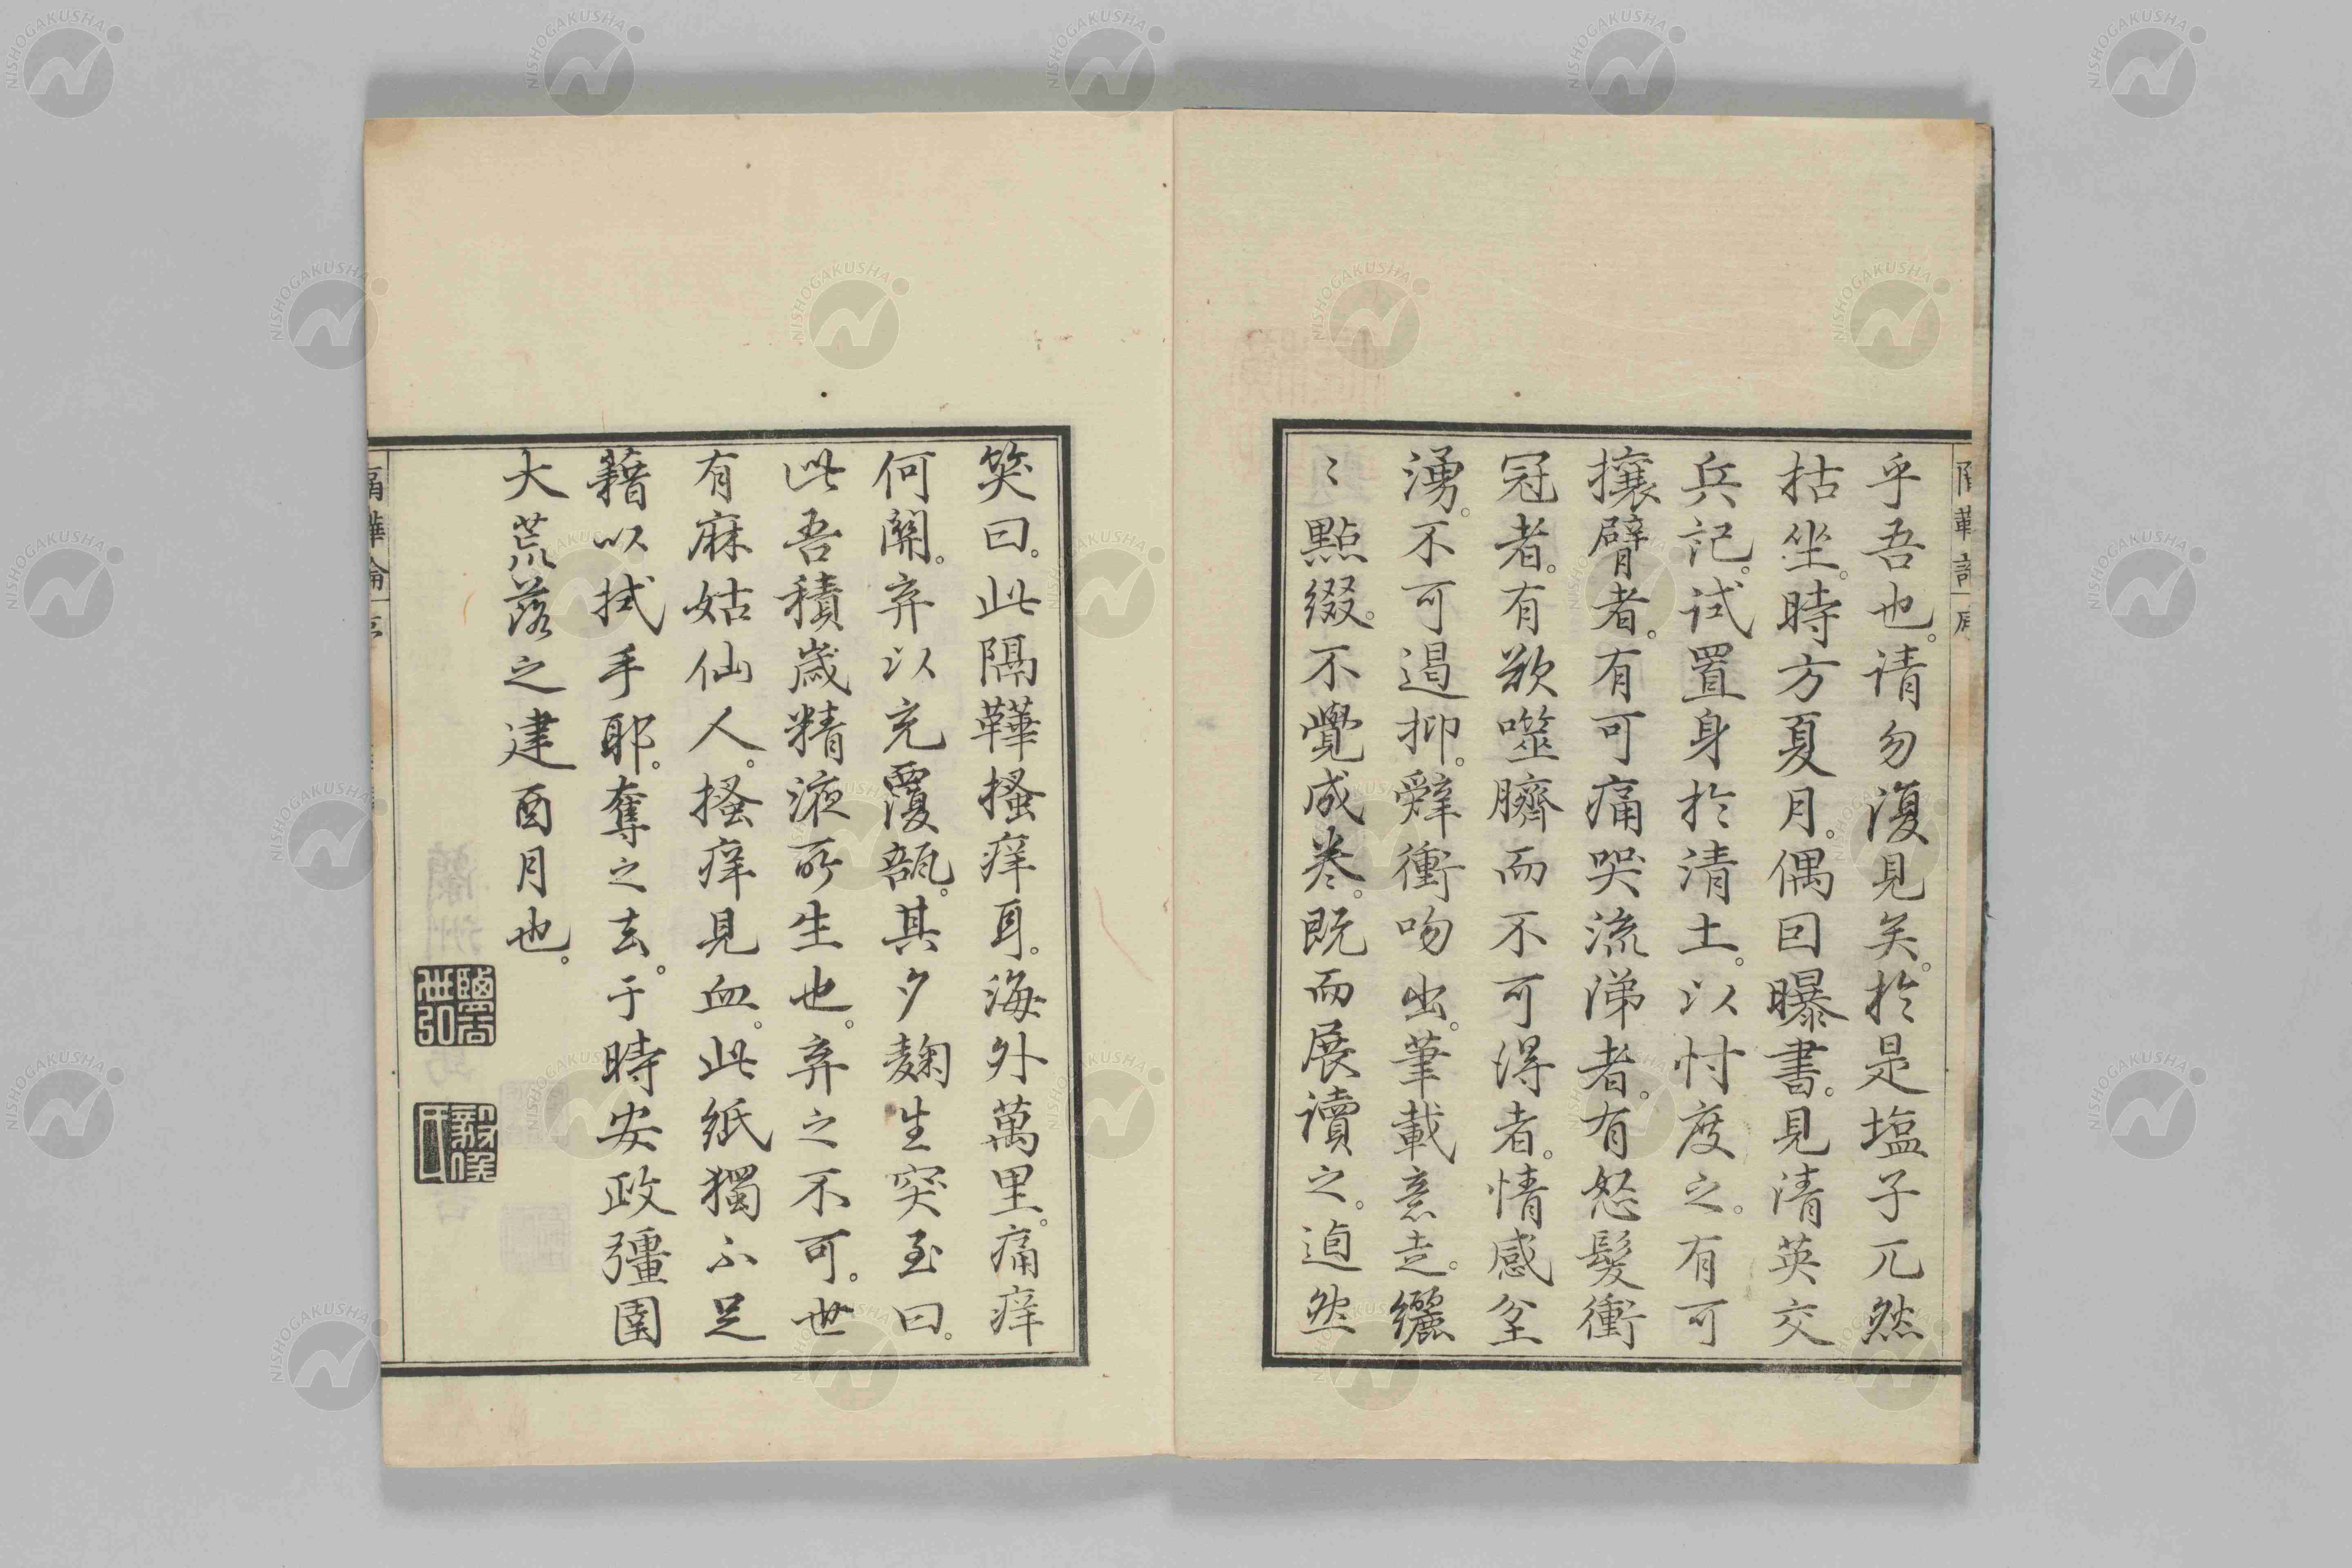 乎吾也。请勿復見矣。於是塩子兀然
枯坐。時方夏月。偶回曝書。見清英交
兵記。试置身於清土。以忖度之。有可
攘臂者。有可痛哭流涕者。有怒髮衝
冠者。有欲噬臍而不可得者。情感坌
湧。不可遏抑。辭衝吻出。筆載意走。纚
〻點綴。不覺成卷。既而展讀之。逌然
笑曰。此隔鞾搔痒耳。海外萬里。痛痒
何關。弃以充覆瓿。其夕麹生突至曰。
此吾積歲精液所生也。弃之不可。世
有麻姑仙人。搔痒見血。此紙獨不足
藉以拭手耶。奪之去。于時安政彊圉
大荒落之建酉月也。
隔鞾論 序
NISHOGAKUSHA